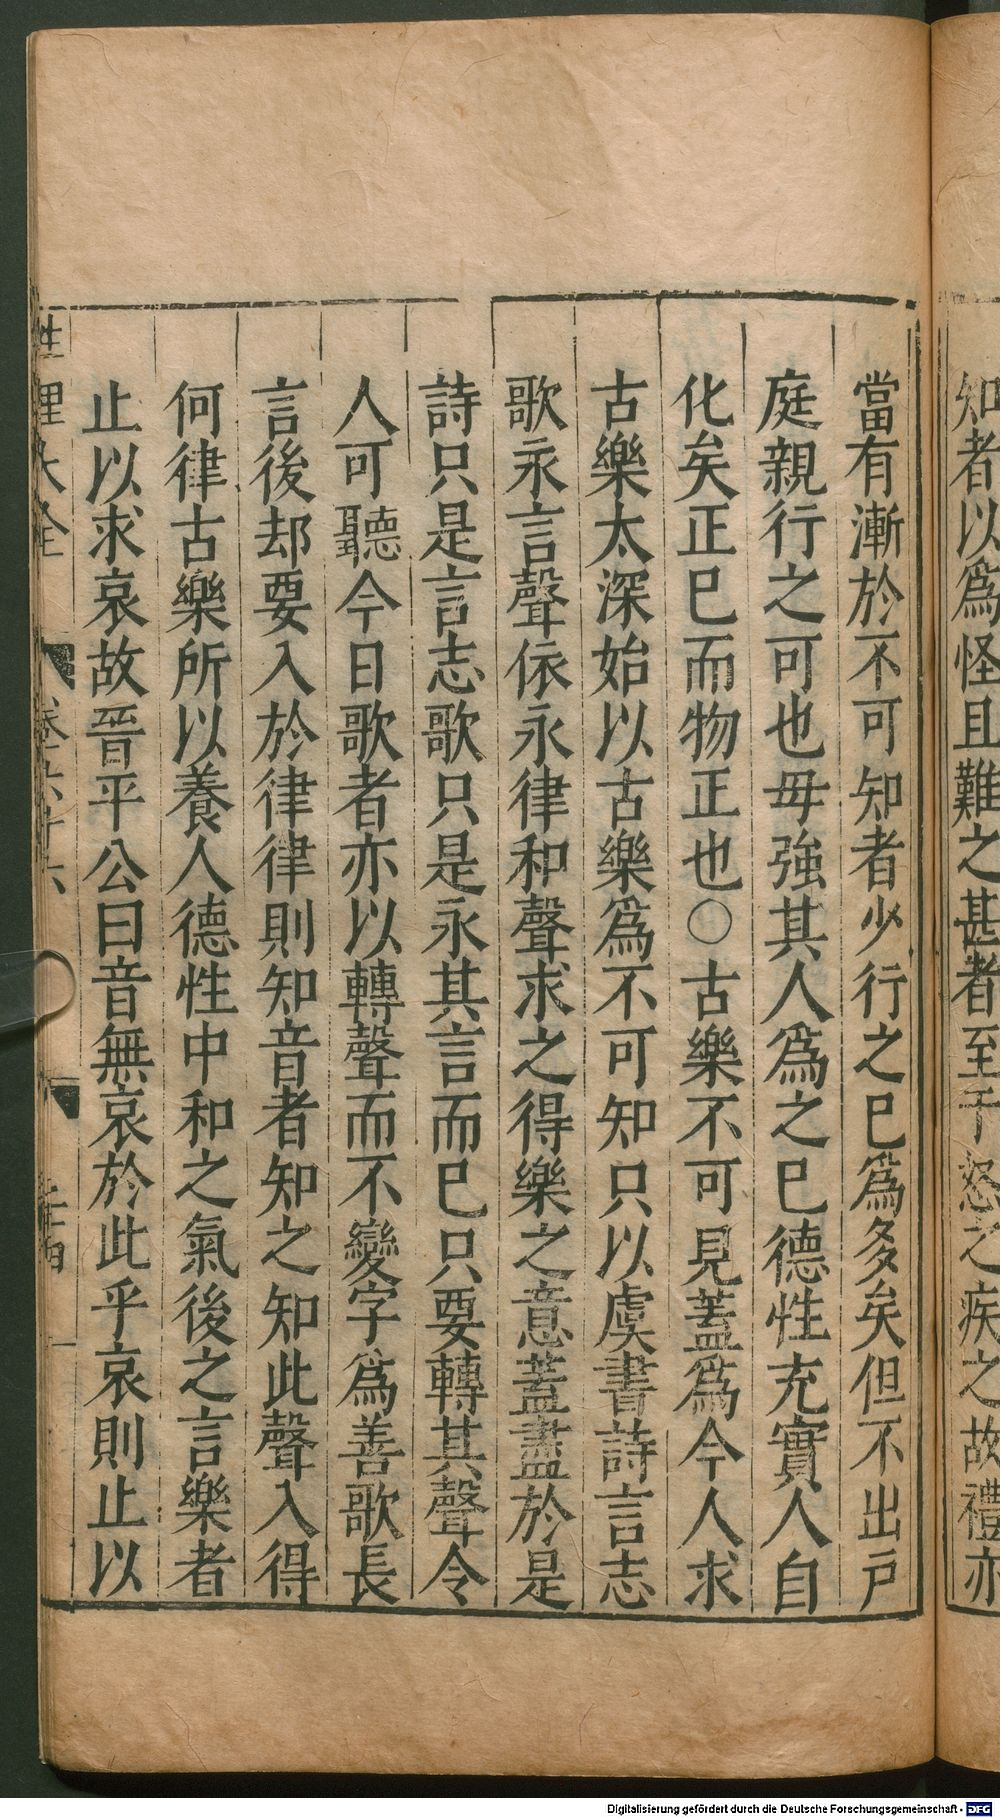 知者以爲怪且難之甚者至于怒之疾之故禮亦
當有漸於不可知者少行之已爲多矣但不出戸
庭親行之可也毋強其人爲之已德性充實人自
化矣正已而物正也○古樂不可見蓋爲今人求
古樂太深始以古樂爲不可知只以虞書詩言志
歌永言聲依永律和聲求之得樂之意蓋盡於是
詩只是言志歌只是永其言而已只要轉其聲令
人可聽今日歌者亦以轉聲而不變字爲善歌長
言後却要入於律律則知音者知之知此聲入得
何律古樂所以養人德性中和之氣後之言樂者
止以求哀故晉平公曰音無哀於此乎哀則止以
性理大全
卷六十六
Digitalisierung gefördert durch die Deutsche Forschungsgemeinschaft - DFG